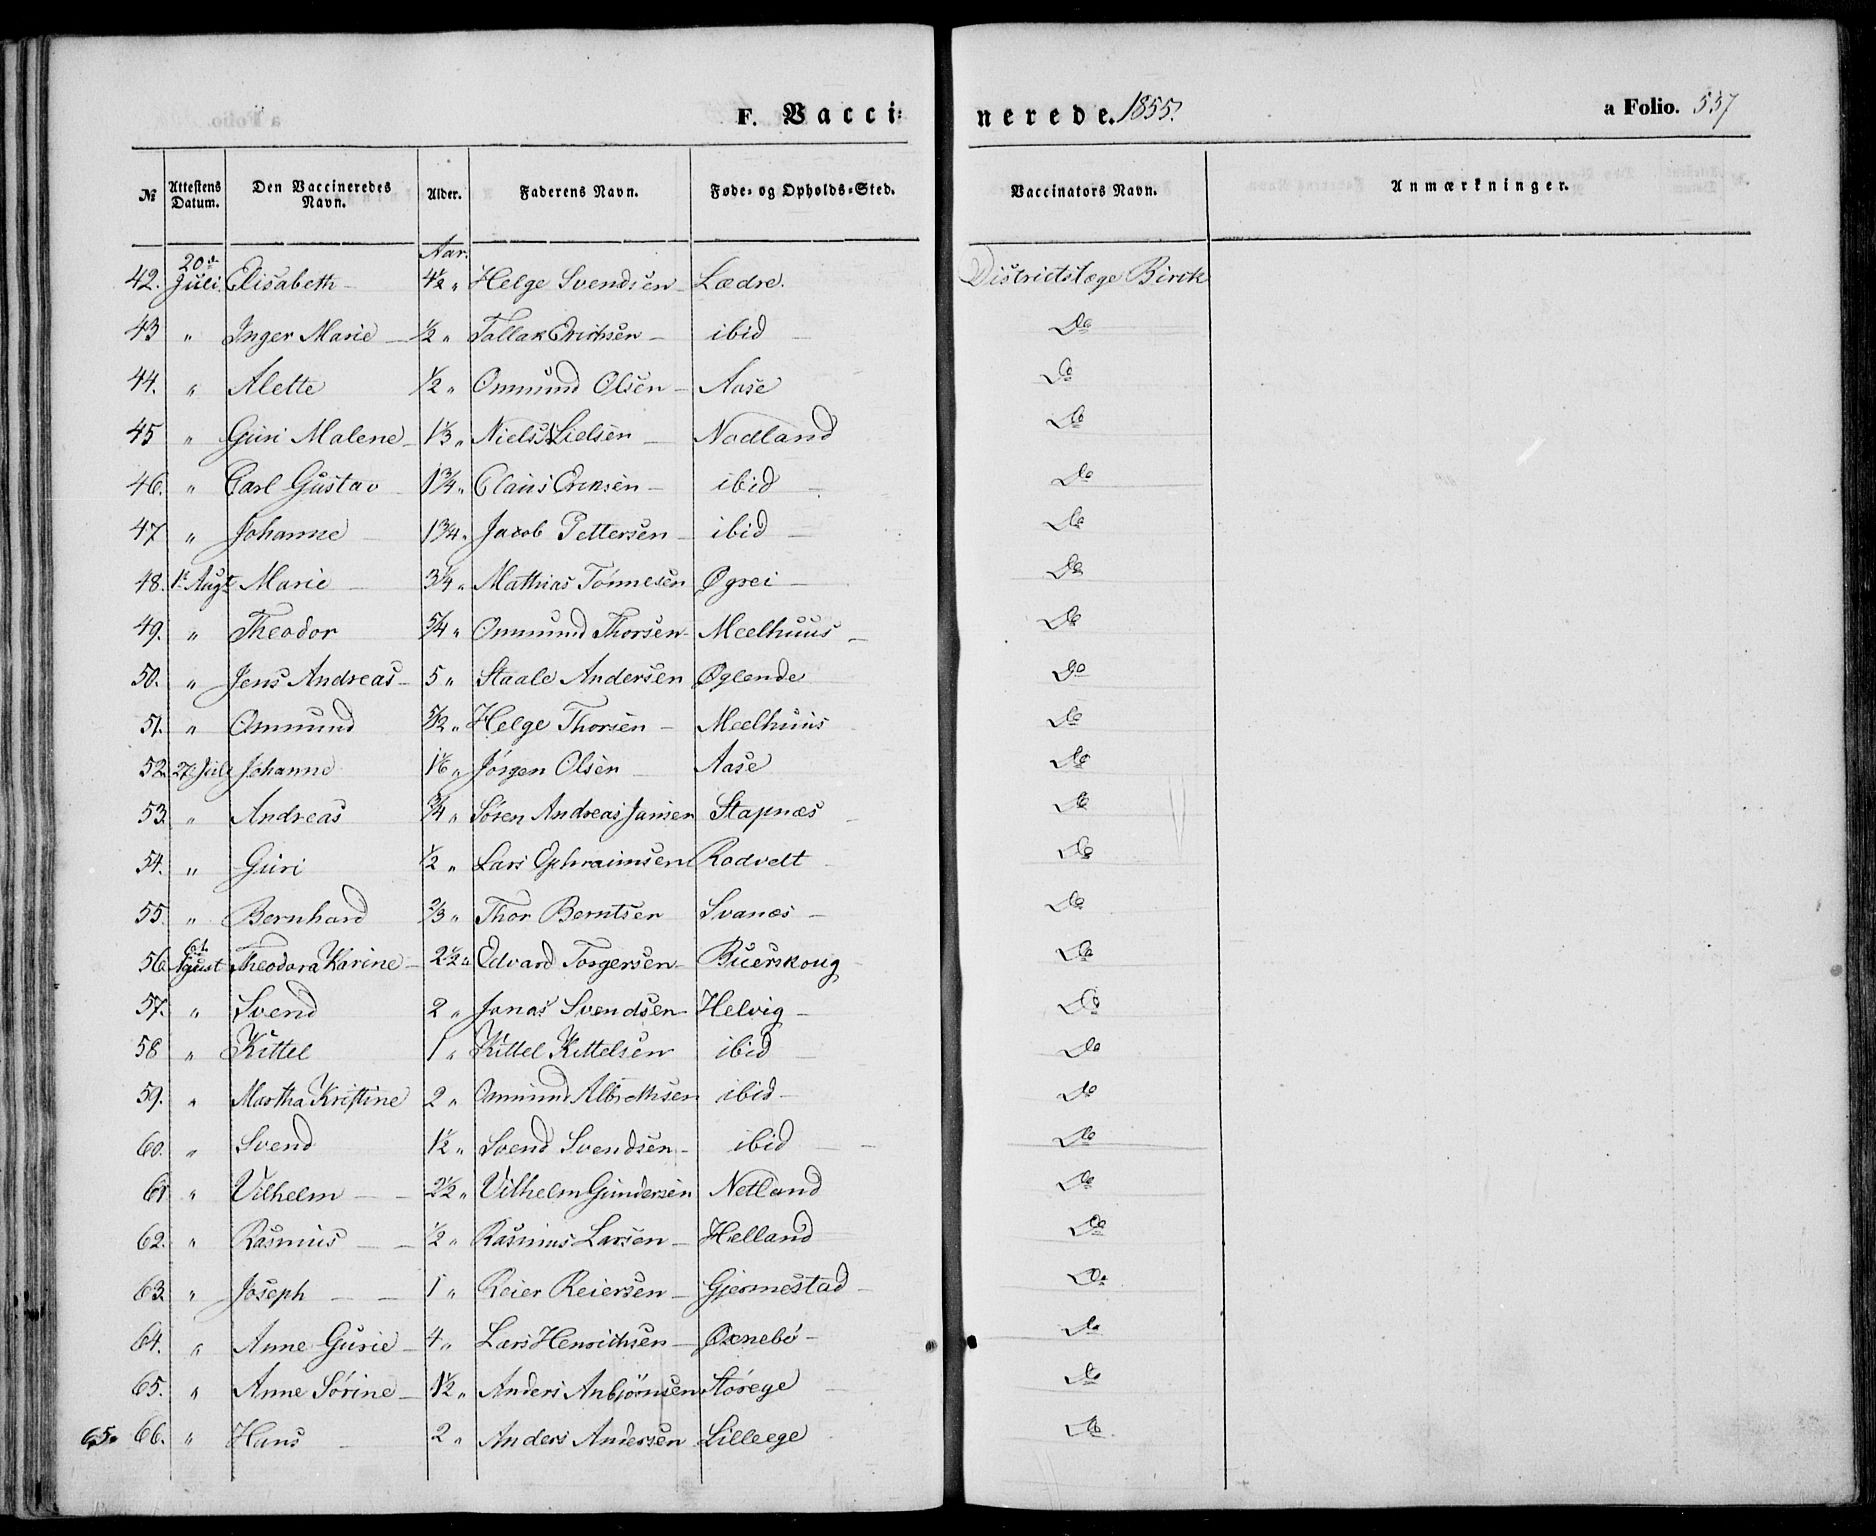 F. Vacci- nerede. 1855. a Folio. 537
№ Attestens Datum. Den Vaccineredes Navn. Alder. Faderens Navn. Føde- og Opholds-Sted. Vaccinators Navn. Anmærkninger.
Aar.
42. 20de Juli Elisabeth 4½ „ Helge Svendsen Lædre. Districtslæge Birch
43 „ Inger Marie ½ „ Tallak Erichsen ibid Do
44. „ Alette ½ „ Ommund Olsen Aase Do
45 „ Guri Malene 1⅓ „ Niels Nielsen Nodland Do
46. „ Carl Gustav 1¾ „ Claus Eriksen ibid Do
47 „ Johanne 1¾ „ Jacob Pettersen ibid Do
48. 1t Augt Marie 3¼ „ Mathias Tönnesen Øgrei Do
49. „ Theodor 5/4 „ Ommund Thorsen Meelhuus Do
50. „ Jens Andreas 5 „ Staale Andersen Øglende Do
51. „ Ommund 5/2 „ Helge Thorsen Meelhuus Do
52. 27. Juli Johanne 1⅙ „ Jörgen Olsen Aase Do
53. „ Andreas ¾ „ Sören Andreas Jansen Stapnæs Do
54. „ Guri ½ „ Lars Ephraimsen Rodvelt Do
55. „ Bernhard ⅔ „ Thor Berntsen Svanes Do
56. 6t. August Theodora Karine 2½ „ Edvard Torgersen Buerskoug Do
57. „ Svend 2 „ Jonas Svendsen Helvig Do
58 „ Kittel 1 „ Kittel Kittelsen ibid Do
59. „ Martha Kristine 2 „ Ommund Albrethsen ibid Do
60. „ Svend 1½ „ Svend Svendsen ibid Do
61 „ Vilhelm 2½ „ Vilhelm Gundersen Netland Do
62. „ Rasmus ½ „ Rasmus Larsen Helland Do
63. „ Joseph 1 „ Reier Reiersen Gjermestad Do
64. „ Anne Gurie 4 „ Lars Henrichsen Øxnebö Do
65. „ Anne Sörine 1½ „ Anders Anbjörnsen Störege Do
65. 66. „ Hans 2 „ Anders Andersen Lilleege Do